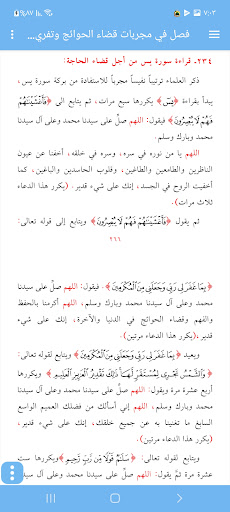 ٧:٠٣
٨٧%
فصل في مجربات قضاء الحوائج وتفري...
٢٣٤- قراءة سورة يس من أجل قضاء الحاجة:
ذكر العلماء ترتيباً نفيساً مجرباً للاستفادة من بركة سورة يس،
يبدأ بقراءة ﴿يسٓ﴾ يكررها سبع مرات، ثم يتابع إلى ﴿فَأَغْشَيْنَـٰهُمْ
فَهُمْ لَا يُبْصِرُونَ﴾ فيقول: اللهم صلِّ على سيدنا محمد وعلى آل سيدنا
محمد وبارك وسلم.
اللهم يا من نوره في سره، وسره في خلقه، أخفنا عن عيون
الناظرين والطامعين والطاغين، وقلوب الحاسدين والباغين، كما
أخفيت الروح في الجسد، إنك على شيء قدير. (يكرر هذا الدعاء
ثلاث مرات).
ثم يقول ﴿فَأَغْشَيْنَـٰهُمْ فَهُمْ لَا يُبْصِرُونَ﴾ ويتابع إلى قوله تعالى:
٢٦٦
﴿بِمَا غَفَرَ لِى رَبِّى وَجَعَلَنِى مِنَ ٱلْمُكْرَمِينَ﴾. فيقول: اللهم صلِّ على سيدنا
محمد وعلى آل سيدنا محمد وبارك وسلم، اللهم أكرمنا بالحفظ
والفهم وقضاء الحوائج في الدنيا والآخرة، إنك على شيء
قدير، (يكرر هذا الدعاء مرتين).
ويعيد ﴿بِمَا غَفَرَ لِى رَبِّى وَجَعَلَنِى مِنَ ٱلْمُكْرَمِينَ﴾ ويتابع لقوله تعالى:
﴿وَٱلشَّمْسُ تَجْرِى لِمُسْتَقَرٍّ لَّهَا ذَٰلِكَ تَقْدِيرُ ٱلْعَزِيزِ ٱلْعَلِيمِ﴾ يكررها
أربع عشرة مرة ويقول: اللهم صلِّ على سيدنا محمد وعلى آل سيدنا
محمد وبارك وسلم، اللهم إني أسألك من فضلك العميم الواسع
السابغ ما تغنينا به عن جميع خلقك، إنك على شيء قدير،
(يكرر هذا الدعاء مرتين).
ويتابع لقوله تعالى: ﴿سَلَـٰمٌ قَوْلًا مِّن رَّبٍّ رَّحِيمٍ﴾ يكررها ست
عشرة مرة ثمَّ يقول: اللهم صلِّ على سيدنا محمد وعلى آل سيدنا